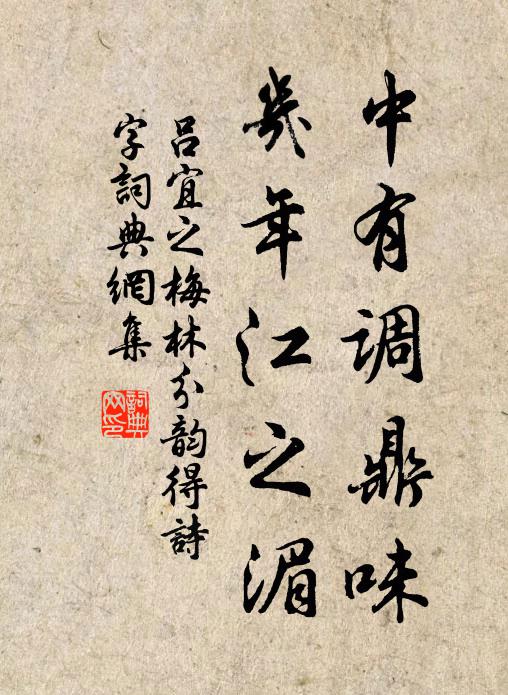 中有调鼎味
几年江之湄
吕宜之梅林分韵得詩
字詞典網集
詞典
网印